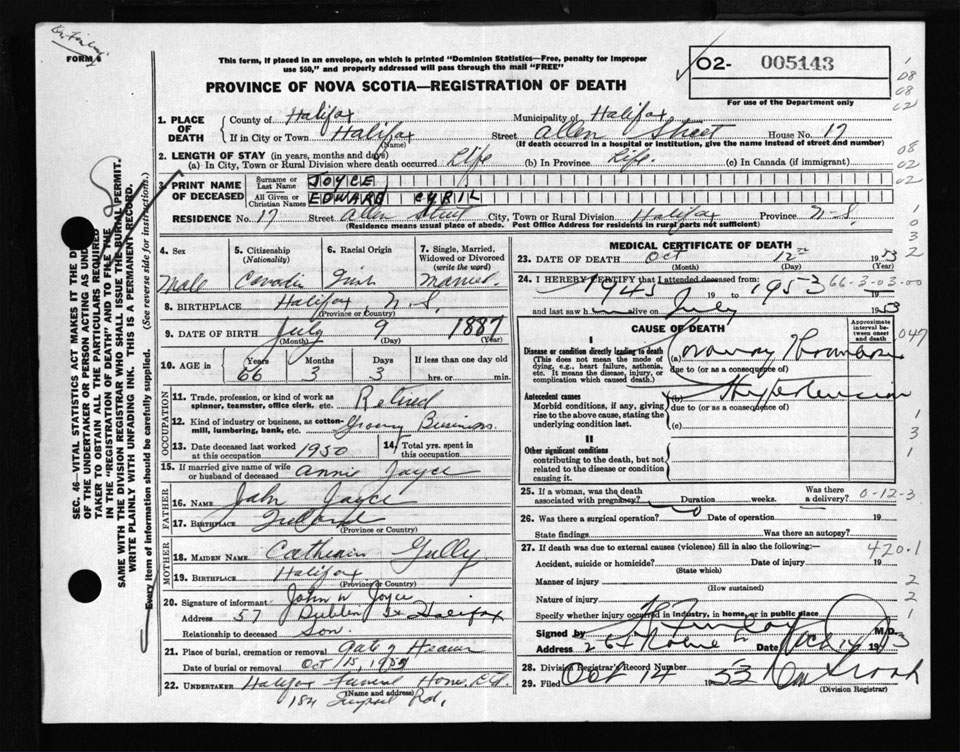 FORM 6
This form, if placed in an envelope, on which is printed "Dominion Statistics—Free, penalty for improper
use $50," and properly addressed will pass through the mail "FREE"
PROVINCE OF NOVA SCOTIA—REGISTRATION OF DEATH
O2- 005143
For use of the Department only
1. PLACE OF DEATH
County of Halifax Municipality of Halifax
If in City or Town Halifax Street Allen Street House No. 17
(Name) (If death occurred in a hospital or institution, give the name instead of street and number)
2. LENGTH OF STAY (in years, months and days)
(a) In City, Town or Rural Division where death occurred Life (b) In Province Life (c) In Canada (if immigrant)
3. PRINT NAME OF DECEASED
Surname or Last Name JOYCE
All Given or Christian Names EDWARD CYRIL
RESIDENCE No. 17 Street Allen Street City, Town or Rural Division Halifax Province N.S.
(Residence means usual place of abode. Post Office Address for residents in rural parts not sufficient)
4. Sex Male
5. Citizenship (Nationality) Canadian
6. Racial Origin Irish
7. Single, Married, Widowed or Divorced (write the word) Married.
8. BIRTHPLACE Halifax, N.S.
(Province or Country)
9. DATE OF BIRTH July 9 1887
(Month) (Day) (Year)
10. AGE in Years 66 Months 3 Days 3 If less than one day old
hrs. or min.
OCCUPATION
11. Trade, profession, or kind of work as spinner, teamster, office clerk, etc. Retired
12. Kind of industry or business, as cotton-mill, lumbering, bank, etc. Grocery Business.
13. Date deceased last worked at this occupation 1950
14. Total yrs. spent in this occupation
15. If married give name of wife or husband of deceased Annie Joyce
FATHER
16. NAME John Joyce
17. BIRTHPLACE Ireland
(Province or Country)
MOTHER
18. MAIDEN NAME Gully
19. BIRTHPLACE Halifax
(Province or Country)
20. Signature of informant John W Joyce
Address 57 Dublin St Halifax
Relationship to deceased Son.
21. Place of burial, cremation or removal Gate of Heaven
Date of burial or removal Oct 15,
22. UNDERTAKER Halifax Funeral Home,
(Name and address)
Rd,
MEDICAL CERTIFICATE OF DEATH
23. DATE OF DEATH Oct 12 1953
(Month) (Day) (Year)
24. I HEREBY CERTIFY that I attended deceased from:
1945 19 to 1953 66-3-03-00
and last saw h alive on July 1953
CAUSE OF DEATH
Approximate interval between onset and death
047
I
Disease or condition directly leading to death
(This does not mean the mode of dying, e.g., heart failure, asthenia, etc. It means the disease, injury, or complication which caused death.)
(a) Coronary Thrombosis
due to (or as a consequence of)
Antecedent causes
Morbid conditions, if any, giving rise to the above cause, stating the underlying condition last.
(b) Hypertension
due to (or as a consequence of)
(c)
II
Other significant conditions
contributing to the death, but not related to the disease or condition causing it.
25. If a woman, was the death associated with pregnancy? Duration weeks. Was there a delivery? 0-12-3
26. Was there a surgical operation? no Date of operation 19
State findings Was there an autopsy?
27. If death was due to external causes (violence) fill in also the following:— 420.1
Accident, suicide or homicide? Date of injury 19
(State which)
Manner of injury
(How sustained)
Nature of injury
Specify whether injury occurred in industry, in home, or in public place
Signed by M.D.
Address Date Oct 1953
28. Division Registrar's Record Number
29. Filed Oct 14 1953
(Division Registrar)
SEC. 46—VITAL STATISTICS ACT MAKES IT THE
OF THE UNDERTAKER OR PERSON ACTING AS
TAKER TO OBTAIN ALL THE PARTICULARS REQUIRED
IN THE "REGISTRATION OF DEATH" AND TO FILE THE
SAME WITH THE DIVISION REGISTRAR WHO SHALL ISSUE THE BURIAL PERMIT.
WRITE PLAINLY WITH UNFADING INK. THIS IS A PERMANENT RECORD.
Every item of information should be carefully supplied. (See reverse side for instructions.)